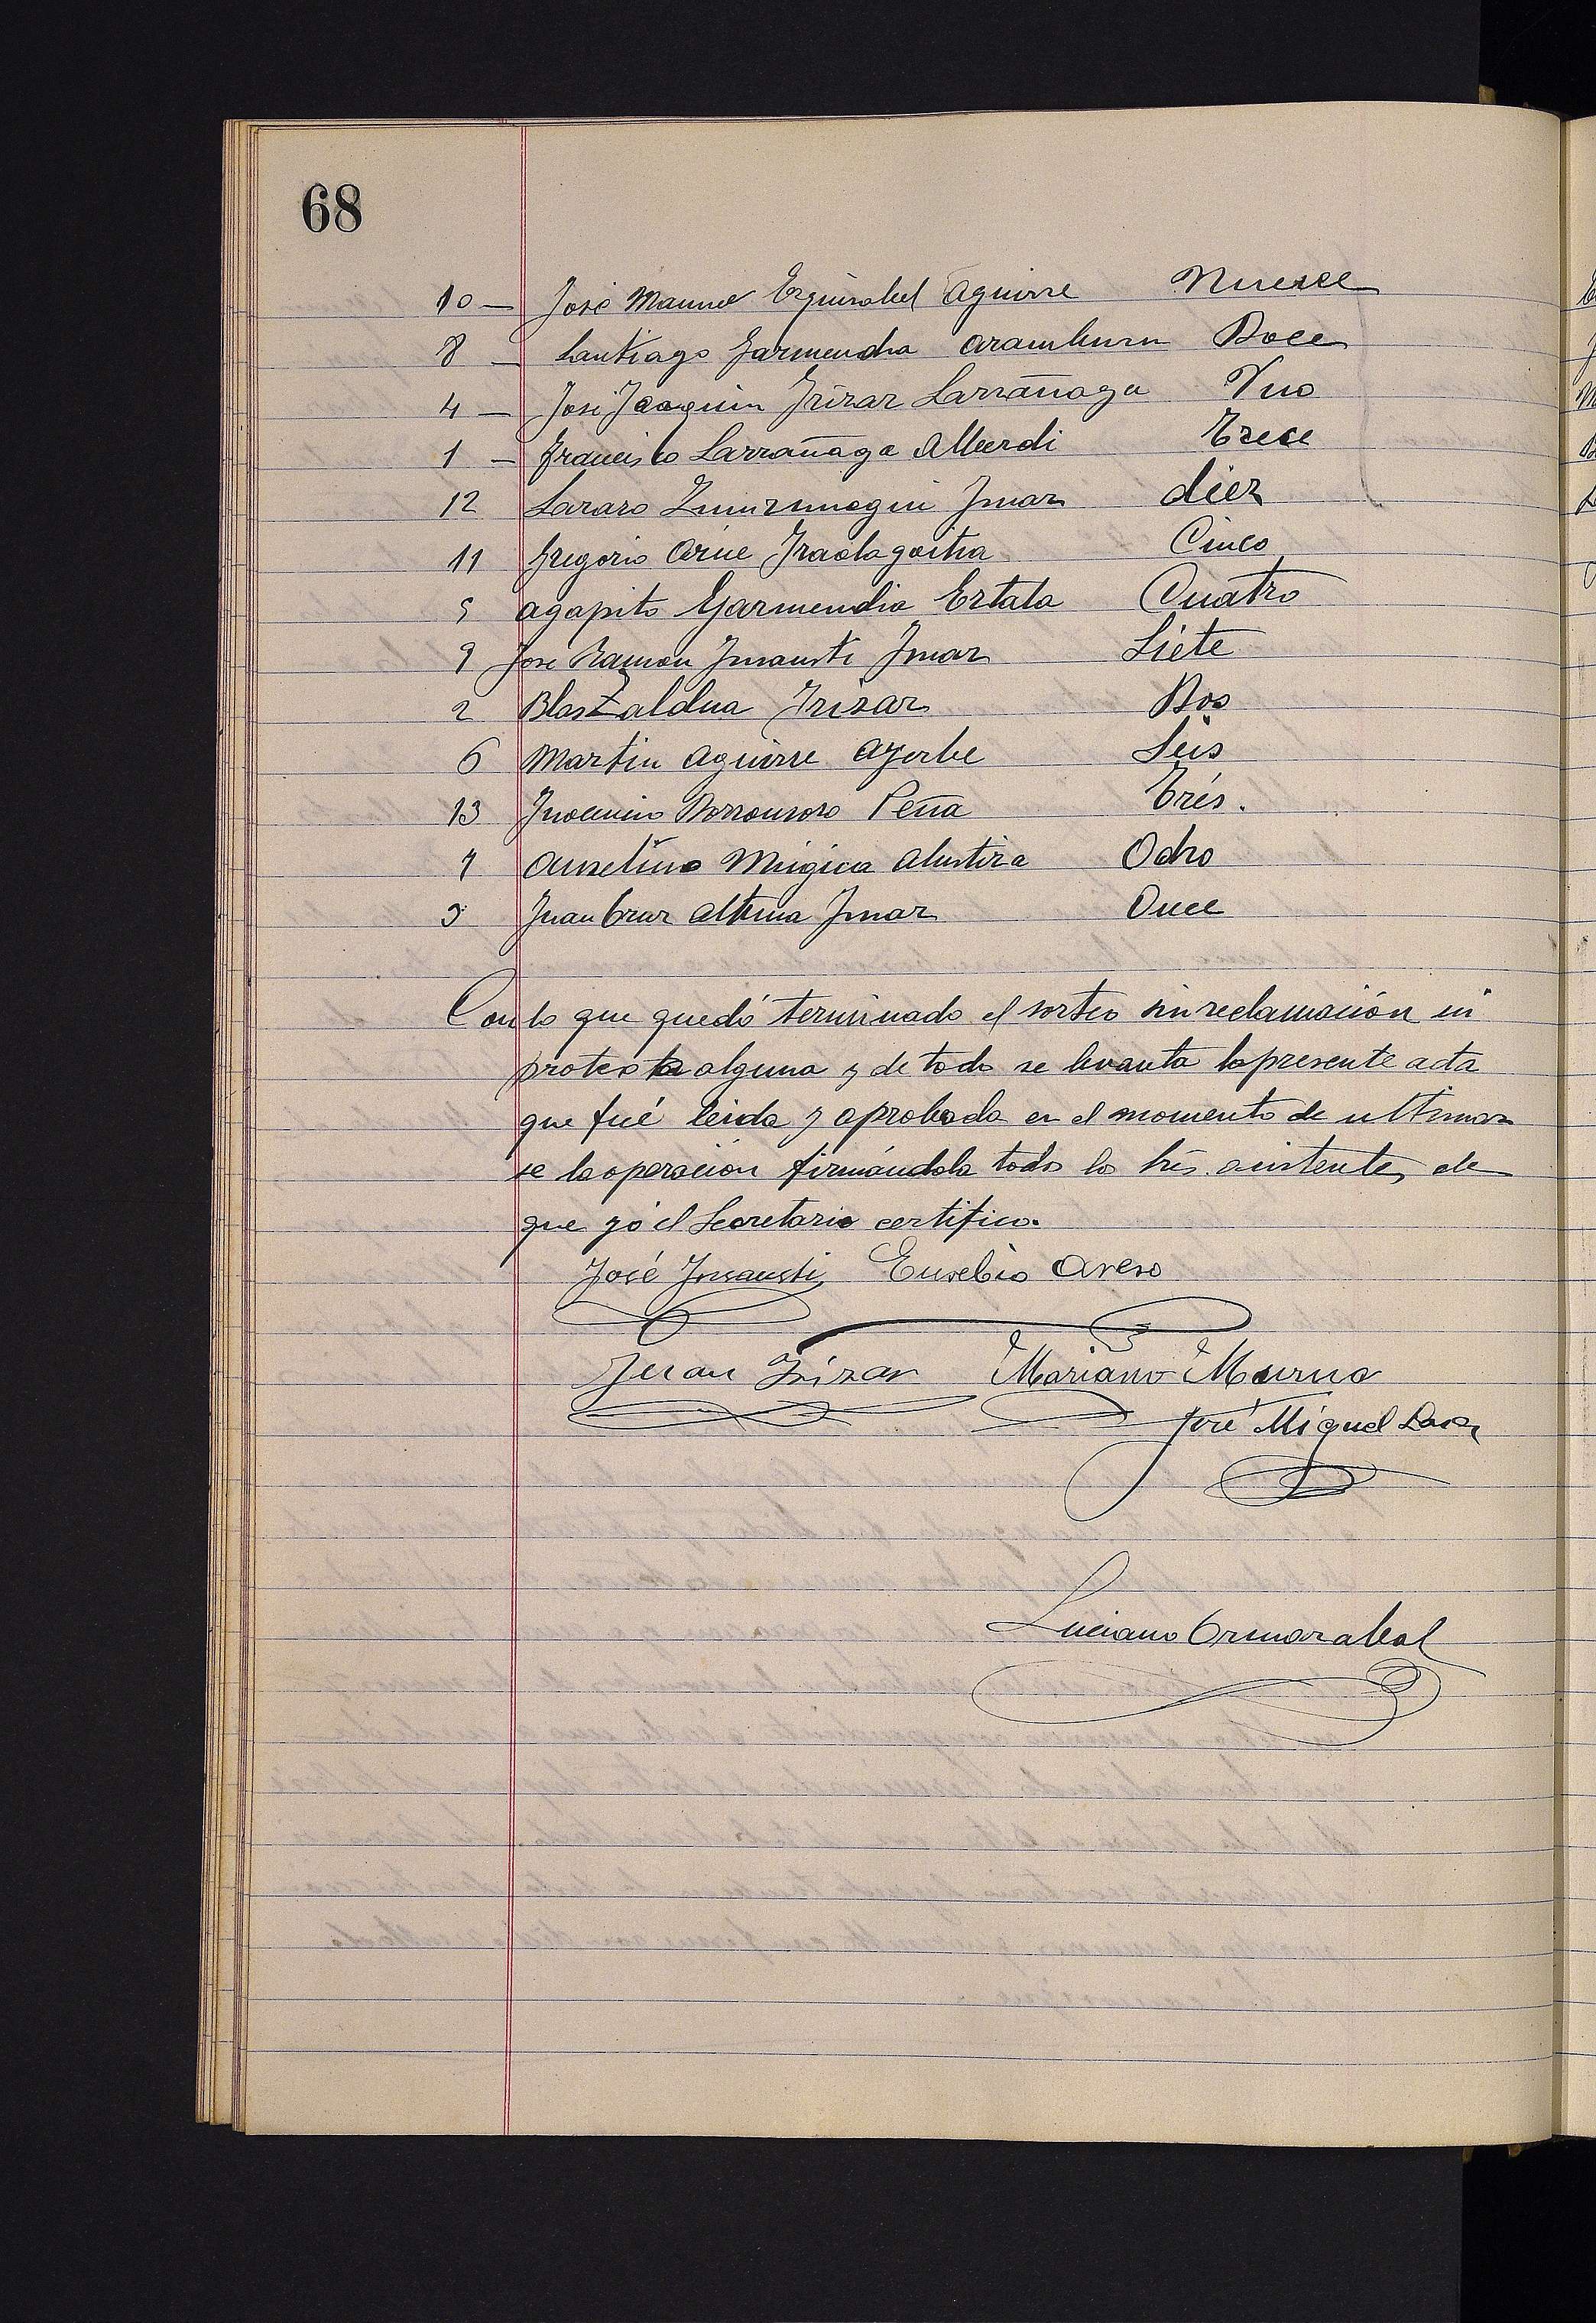 68
10 — José Manuel Ezquisabel Aguirre Nueve
8 — Santiago Garmendia Aramburu Doce
4 — José Joaquin Irizar Larrañaga Uno
1 — Francisco Larrañaga Alberdi Trece
12 Lazaro Zunzunegui Insaz diez
11 Gregorio Arine Iraolagoitia Cinco
5 Agapito Garmendia Ertala Cuatro
9 Jose Ramon Insausti Siete
2 Blas Zaldua Irizar Dos
6 Martin Aguirre Ayerbe Seis
13 Inocencio Borronsoro Peña Trés.
7 Anselmo Mugica Alustiza Ocho
3 Juan Cruz Altuna Once
Con lo que quedó terminado el sorteo sin reclamación ni
protesta alguna y de todo se levanta la presente acta
que fué leida y aprobada en el momento de ultimar
se la operación firmándola todos los Srs. asistentes, de
que yó el Secretario certifico.
José Insausti Eusebio
Juan Irizar Mariano Murua
José Miguel Lasa
Luciano Ormazabal